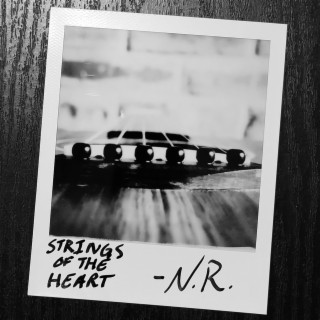 STRINGS
OF THE
HEART
-N.R.